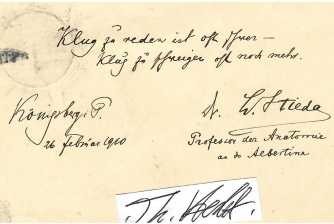 Klug zu reden ist oft schwer –
Klug zu schweigen oft noch mehr.
Königsberg i. P.
26 Februar 1910
Dr. L. Stieda
Professor der Anatomie
an der Albertina
Th.